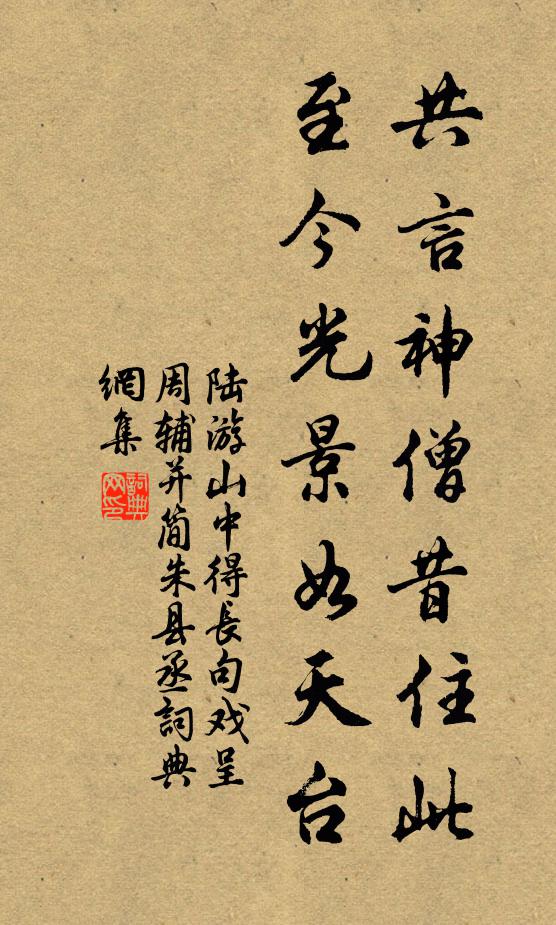 共言神僧昔住此
至今光景如天台
陆游山中得長句戏呈
周辅并简朱县丞詞典
網集
詞典
网印